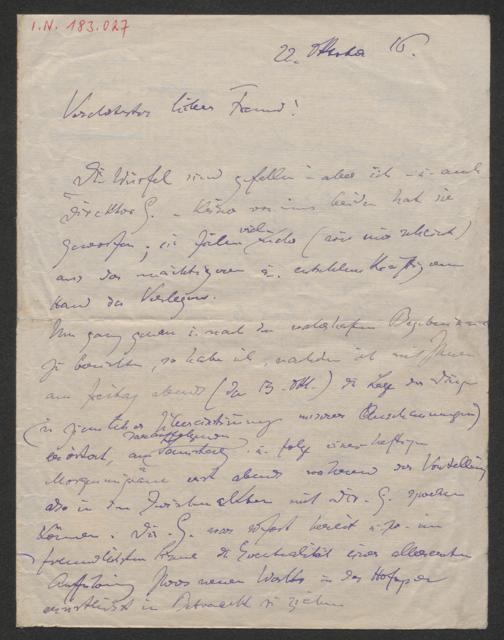 I.N. 183.027
22. Oktober 16.
Verehrtester lieber Freund!
Die Würfel sind gefallen – aber ich – u. auch
Direktor G. – keiner von uns beiden hat sie
geworfen; sie fielen vielmehr (wie mir scheint)
aus der mächtigeren u. entschlusskräftigeren
Hand des Verlegers.
Um ganz genau u. nach der Begebenheiten
zu berichten, so habe ich, nachdem ich mit Ihnen
am Freitag abend (den 13. Okt.) die Lage der Dinge
(in ziemlicher Übereinstimmung unserer Anschauungen)
erörtert, am darauffolgenden Samstag in folge einer heftigen
Morgenmigräne erst abends während der Vorstellung
also in den Zwischenakten mit Dir. G. sprechen
können. Dir. G. war sofort bereit u. zw. im
freundlichsten Sinne die Eventualität einer allerersten
Aufführung Ihres neuen Werkes in der Hofoper
ernstlichst in Betracht zu ziehen